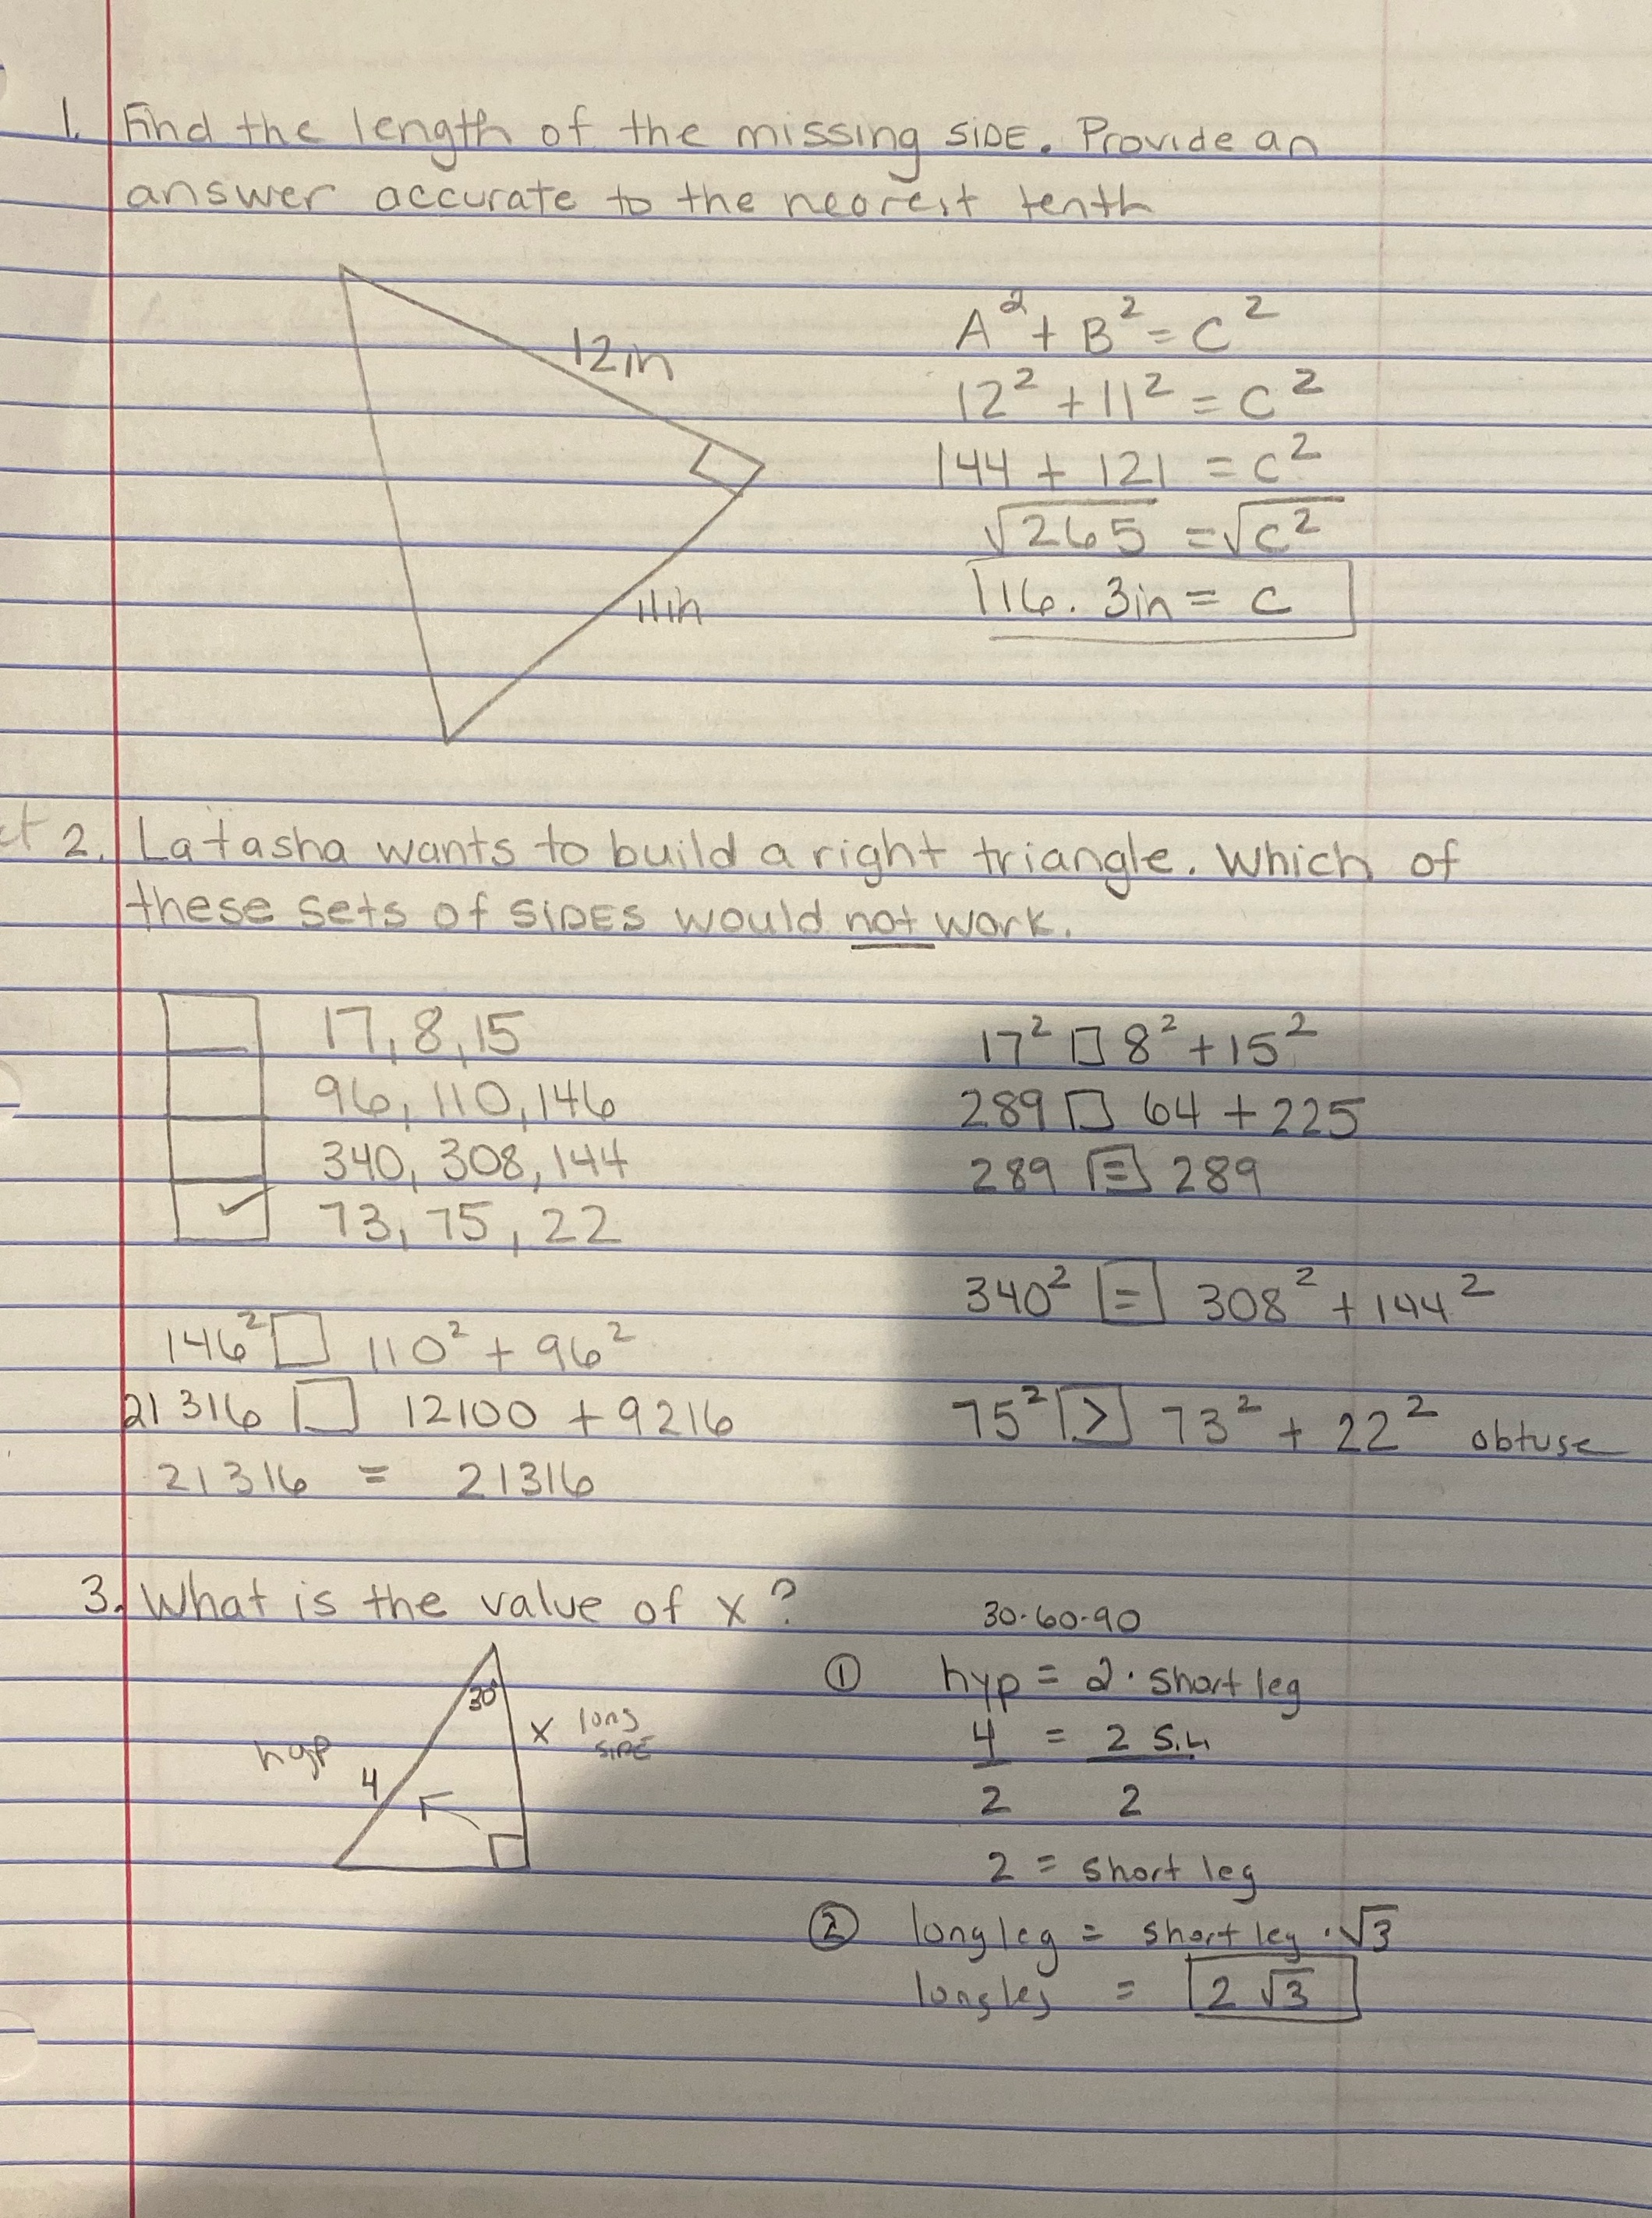 1. Find the length of the missing SIDE. Provide an
answer accurate to the nearest tenth
12in
11in
A² + B² = C²
12² + 11² = C²
144 + 121 = C²
√265 = √C²
16.3in = C
2. Latasha wants to build a right triangle. Which of
these sets of SIDES would not work.
17, 8, 15
96, 110, 146
340, 308, 144
✓ 73, 75, 22
17² □ 8² + 15²
289 □ 64 + 225
289 = 289
340² = 308² + 144²
75² > 73² + 22² obtuse
146² □ 110² + 96²
21316 □ 12100 + 9216
21316 = 21316
3. What is the value of x?
30°
hyp
4
x long
SIDE
30-60-90
① hyp = 2 · short leg
4 = 2 S.L
2 2
2 = short leg
② long leg = short leg · √3
long leg = 2√3